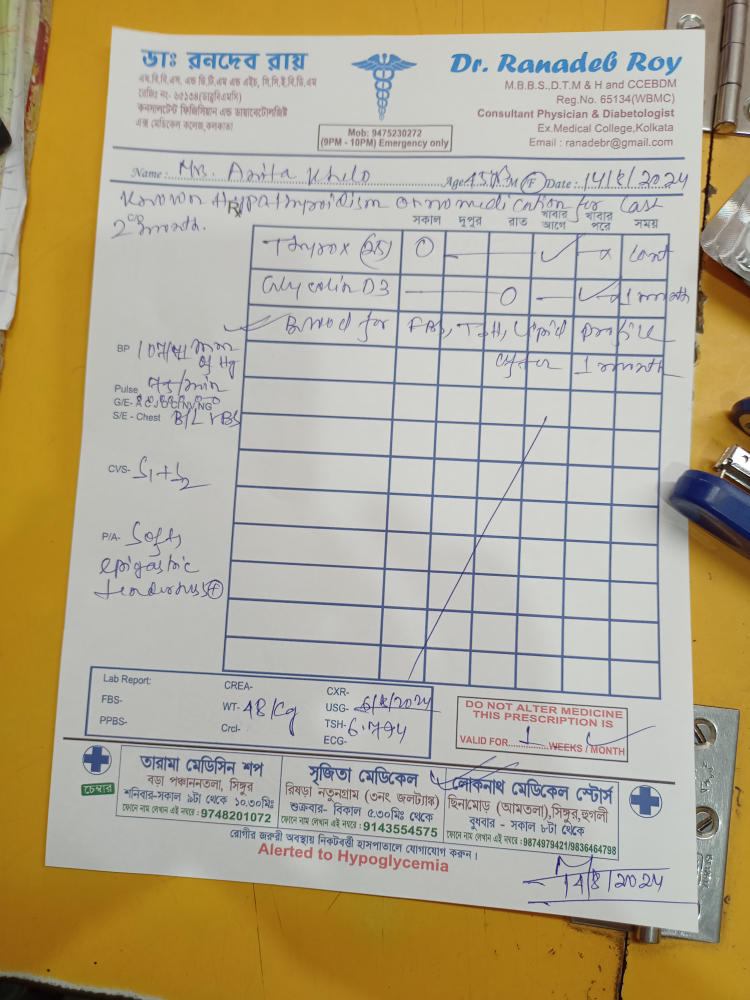 ডাঃ রনদেব রায়
এম.বি.বি.এস, এন্ড ডি.টি.এম এন্ড এইচ, সি.সি.ই.বি.ডি.এম
রেজিঃ নং- ৬৫১৩৪(ডাব্লুবিএমসি)
কনসালটেন্ট ফিজিসিয়ান এন্ড ডায়াবেটোলজিষ্ট
এক্স মেডিকেল কলেজ,কলকাতা
Mob: 9475230272
(9PM - 10PM) Emergency only
Dr. Ranadeb Roy
M.B.B.S.,D.T.M & H and CCEBDM
Reg.No. 65134(WBMC)
Consultant Physician & Diabetologist
Ex.Medical College,Kolkata
Email : ranadebr@gmail.com
Name: Mrs. Anita Age 45 M F Date: 14/8/2024
Known Hypothyroidism on no medication for last
2 month.
সকাল দুপুর রাত খাবার আগে খাবার পরে সময়
Thyrox (25) O ✓ cont
O ✓ 1 month
Blood for FBS, TSH, Lipid profile
after 1 month
BP mm of Hg
Pulse /min
G/E-
S/E - Chest B/L VBS
CVS- S1+S2
P/A- Soft,
epigastric
tenderness (+)
Lab Report:
FBS-
PPBS-
CREA-
WT- 48 Kg
Crcl-
CXR-
USG- 6/8/2024
TSH- 6.794
ECG-
DO NOT ALTER MEDICINE
THIS PRESCRIPTION IS
VALID FOR 1 WEEKS / MONTH
চেম্বার
তারামা মেডিসিন শপ
বড়া পঞ্চাননতলা, সিঙ্গুর
শনিবার-সকাল ৯টা থেকে ১০.৩০মিঃ
ফোনে নাম লেখান এই নম্বরে : 9748201072
সৃজিতা মেডিকেল
রিষড়া নতুনগ্রাম (৩নং জলট্যাঙ্ক)
শুক্রবার- বিকাল ৫.৩০মিঃ থেকে
ফোনে নাম লেখান এই নম্বরে : 9143554575
লোকনাথ মেডিকেল স্টোর্স
ছিনামোড় (আমতলা),সিঙ্গুর,হুগলী
বুধবার - সকাল ৮টা থেকে
ফোনে নাম লেখান এই নম্বরে : 9874979421/9836464798
রোগীর জরুরী অবস্থায় নিকটবর্ত্তী হাসপাতালে যোগাযোগ করুন।
Alerted to Hypoglycemia
14/8/2024